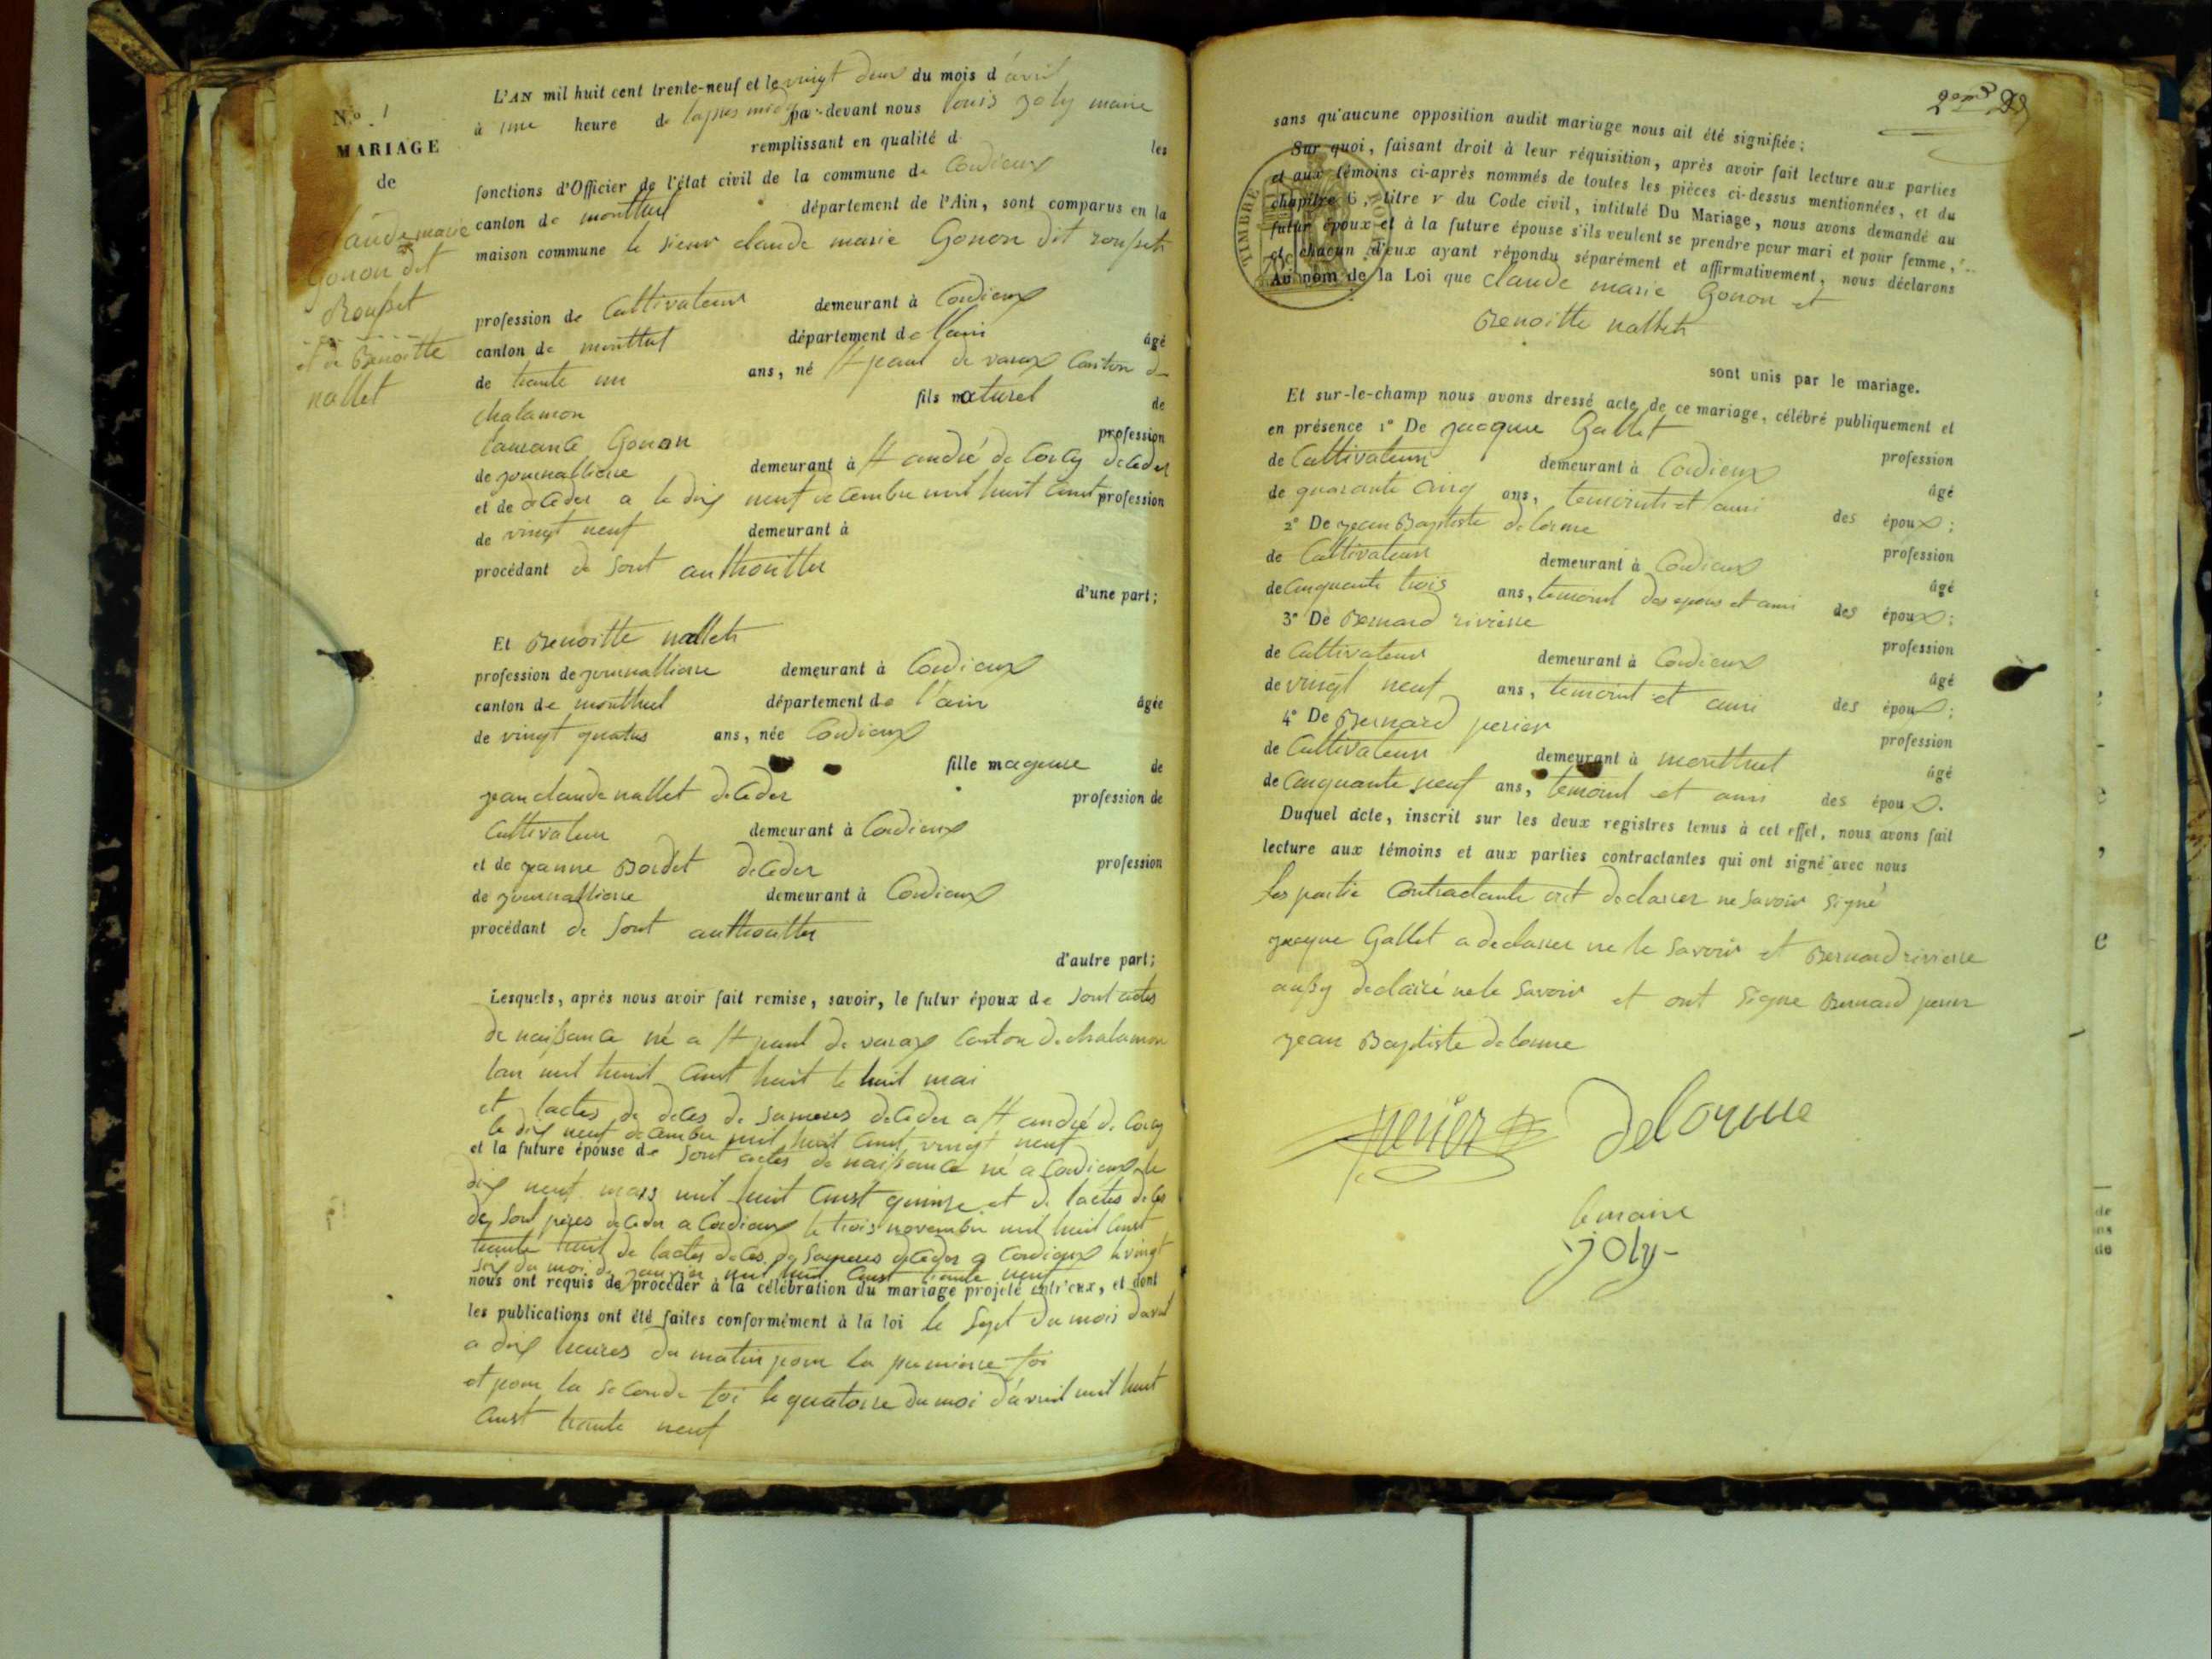 N.o 1
MARIAGE
de
Claude marie
Gonon dit
Rousset
et de Benoitte
nallet
L'AN mil huit cent trente-neuf et le vingt deux du mois d'avril
à une heure de lapres midy par-devant nous louis joly maire
remplissant en qualité d les
fonctions d'Officier de l'état civil de la commune de Cordieux
canton de montluel département de l'Ain, sont comparus en la
maison commune le sieur claude marie Gonon dit
profession de Cultivateur demeurant à Cordieux
canton de montluel département de lain âgé
de trante un ans, né St paul de varax Canton de
chalamon fils naturel de
Gonon profession
de journalliere demeurant à St andré de Corcy decedes
et de decedes a le dix neuf decembre mil huit Cent profession
de vingt neuf demeurant à
procédant de sont
d'une part;
Et Benoitte nallet
profession de journalliere demeurant à Cordieux
canton de montluel département de l'ain âgée
de vingt quatre ans, née Cordieux
fille mageure de
jean claude nallet decedes profession de
Cultivateur demeurant à Cordieux
et de jeanne Bordet decedes profession
de journalliere demeurant à Cordieux
procédant de sont
d'autre part;
Lesquels, après nous avoir fait remise, savoir, le futur époux de sont actes
de naissance né a St paul de varax Canton de chalamon
lan mil huit Cent huit le huit mai
et lactes de deces de sameres decedes a St andré de Corcy
le dix neuf decembre mil huit Cent vingt neuf
et la future épouse de sont actes de naissance né a Cordieux le
dix neuf mars mil huit Cent quinze et de lactes deces
de sont peres decedes a Cordieux le trois novembre mil huit Cent
trante huit de lactes deces de sameres decedes a Cordieux le vingt
six du moi de janvier mil huit Cent trante neuf
nous ont requis de procéder à la célébration du mariage projeté entr'eux, et dont
les publications ont été faites conformément à la loi le sept du mois davril
a dix heures du matin pour la premiere foi
et pour la seconde foi le quatorze du moi d'avril mil huit
Cent trante neuf
sans qu'aucune opposition audit mariage nous ait été signifiée;
Sur quoi, faisant droit à leur réquisition, après avoir fait lecture aux parties
et aux témoins ci-après nommés de toutes les pièces ci-dessus mentionnées, et du
chapitre 6, titre v du Code civil, intitulé Du Mariage, nous avons demandé au
futur époux et à la future épouse s'ils veulent se prendre pour mari et pour femme,
et chacun d'eux ayant répondu séparément et affirmativement, nous déclarons
Au nom de la Loi que claude marie Gonon et
Benoitte nallet
sont unis par le mariage.
Et sur-le-champ nous avons dressé acte de ce mariage, célébré publiquement et
en présence 1° De jacque Gallet profession
de Cultivateur demeurant à Cordieux âgé
de quarante cinq ans, temoint et ami des époux;
2° De jean Baptiste delorme profession
de Cultivateur demeurant à Cordieux âgé
de Cinquante trois ans, temoint des epoux et ami des époux;
3° De Bernard rivierre profession
de Cultivateur demeurant à Cordieux âgé
de vingt neuf ans, temoint et ami des époux;
4° De Bernard perier profession
de Cultivateur demeurant à montluel âgé
de Cinquante neuf ans, temoint et ami des époux.
Duquel acte, inscrit sur les deux registres tenus à cet effet, nous avons fait
lecture aux témoins et aux parties contractantes qui ont signé avec nous
les partie Contractante ont declarer ne savoir signé
jacque Gallet a declarer ne le savoir et Bernard rivierre
aussy declaré ne le savoir et ont signe Bernard perier
jean Baptiste delorme
perier
delorme
le maire
joly
TIMBRE